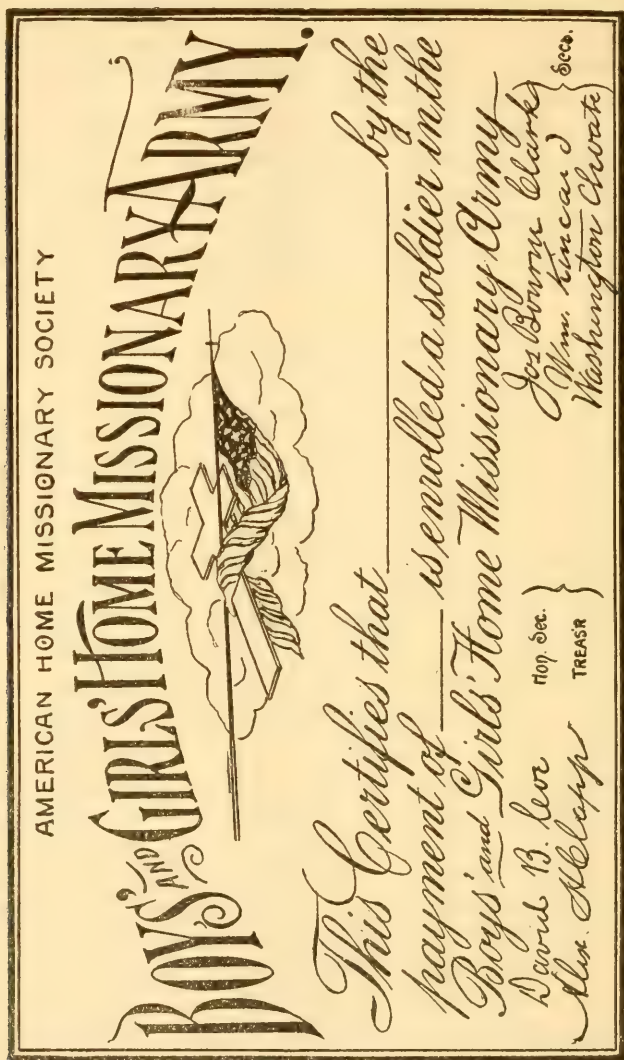 AMERICAN HOME MISSIONARY SOCIETY
BOYS' AND GIRLS' HOME MISSIONARY ARMY.
This Certifies that by the
payment of is enrolled a soldier in the
Boys' and Girls' Home Missionary Army
David B. Coe Hon. Sec.
Alex. H. Clapp TREAS'R
Jos Bourne Clark
Wm. Kincaid Secs.
Washington Choate